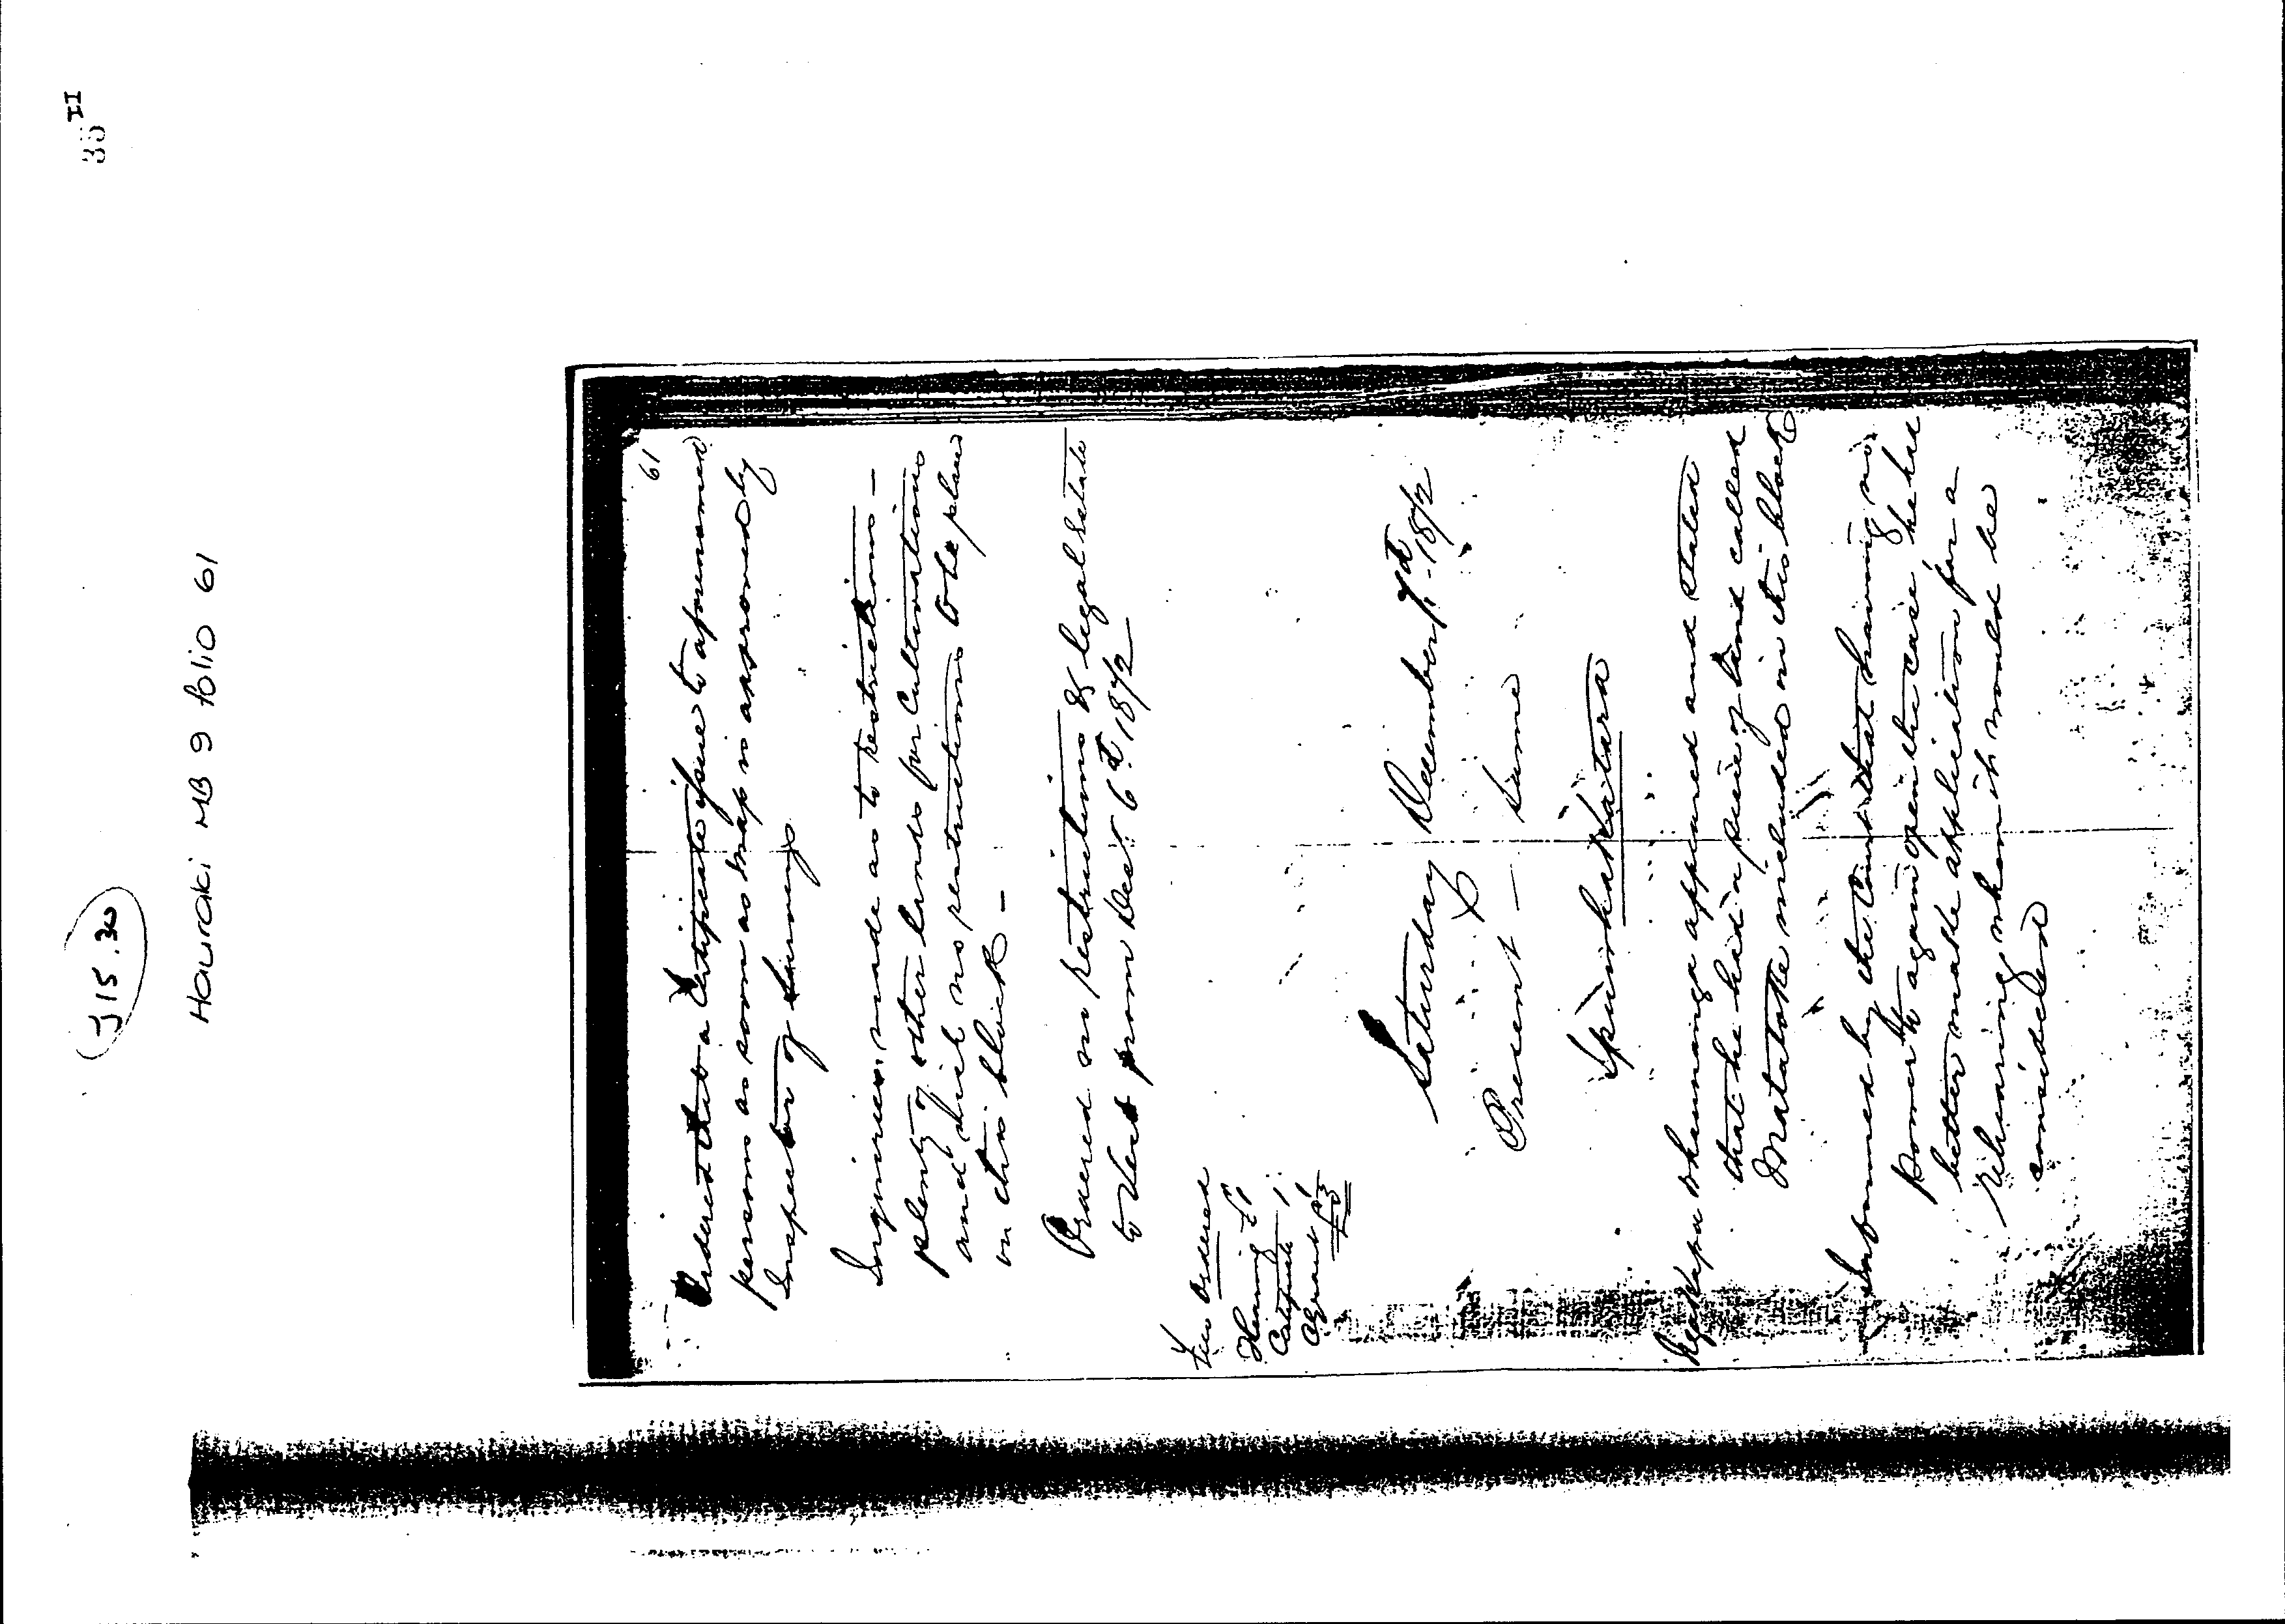 J15.30
35 II
Hauraki MB 9 folio 61
61
Ordered that a Certificate issue to aforenamed
persons as soon as map is approved by
Inspector of Surveys
Inquiries made as to restrictions -
plenty of other lands for Cultivations
and which no restrictions to be placed
on this block -
Ordered no restrictions & legal Estate
to Vest from Dec. 6th 1872
Fees ordered
Hearing £1
Certificate 1
C Grant 1
£3
Saturday December 7th 1872
Present - Same
appeared and stated
that he had a piece of land called
Matatoke included in this block
Informed by the Court that having no
power to again open the case he had
better make application for a
rehearing when it would be
considered